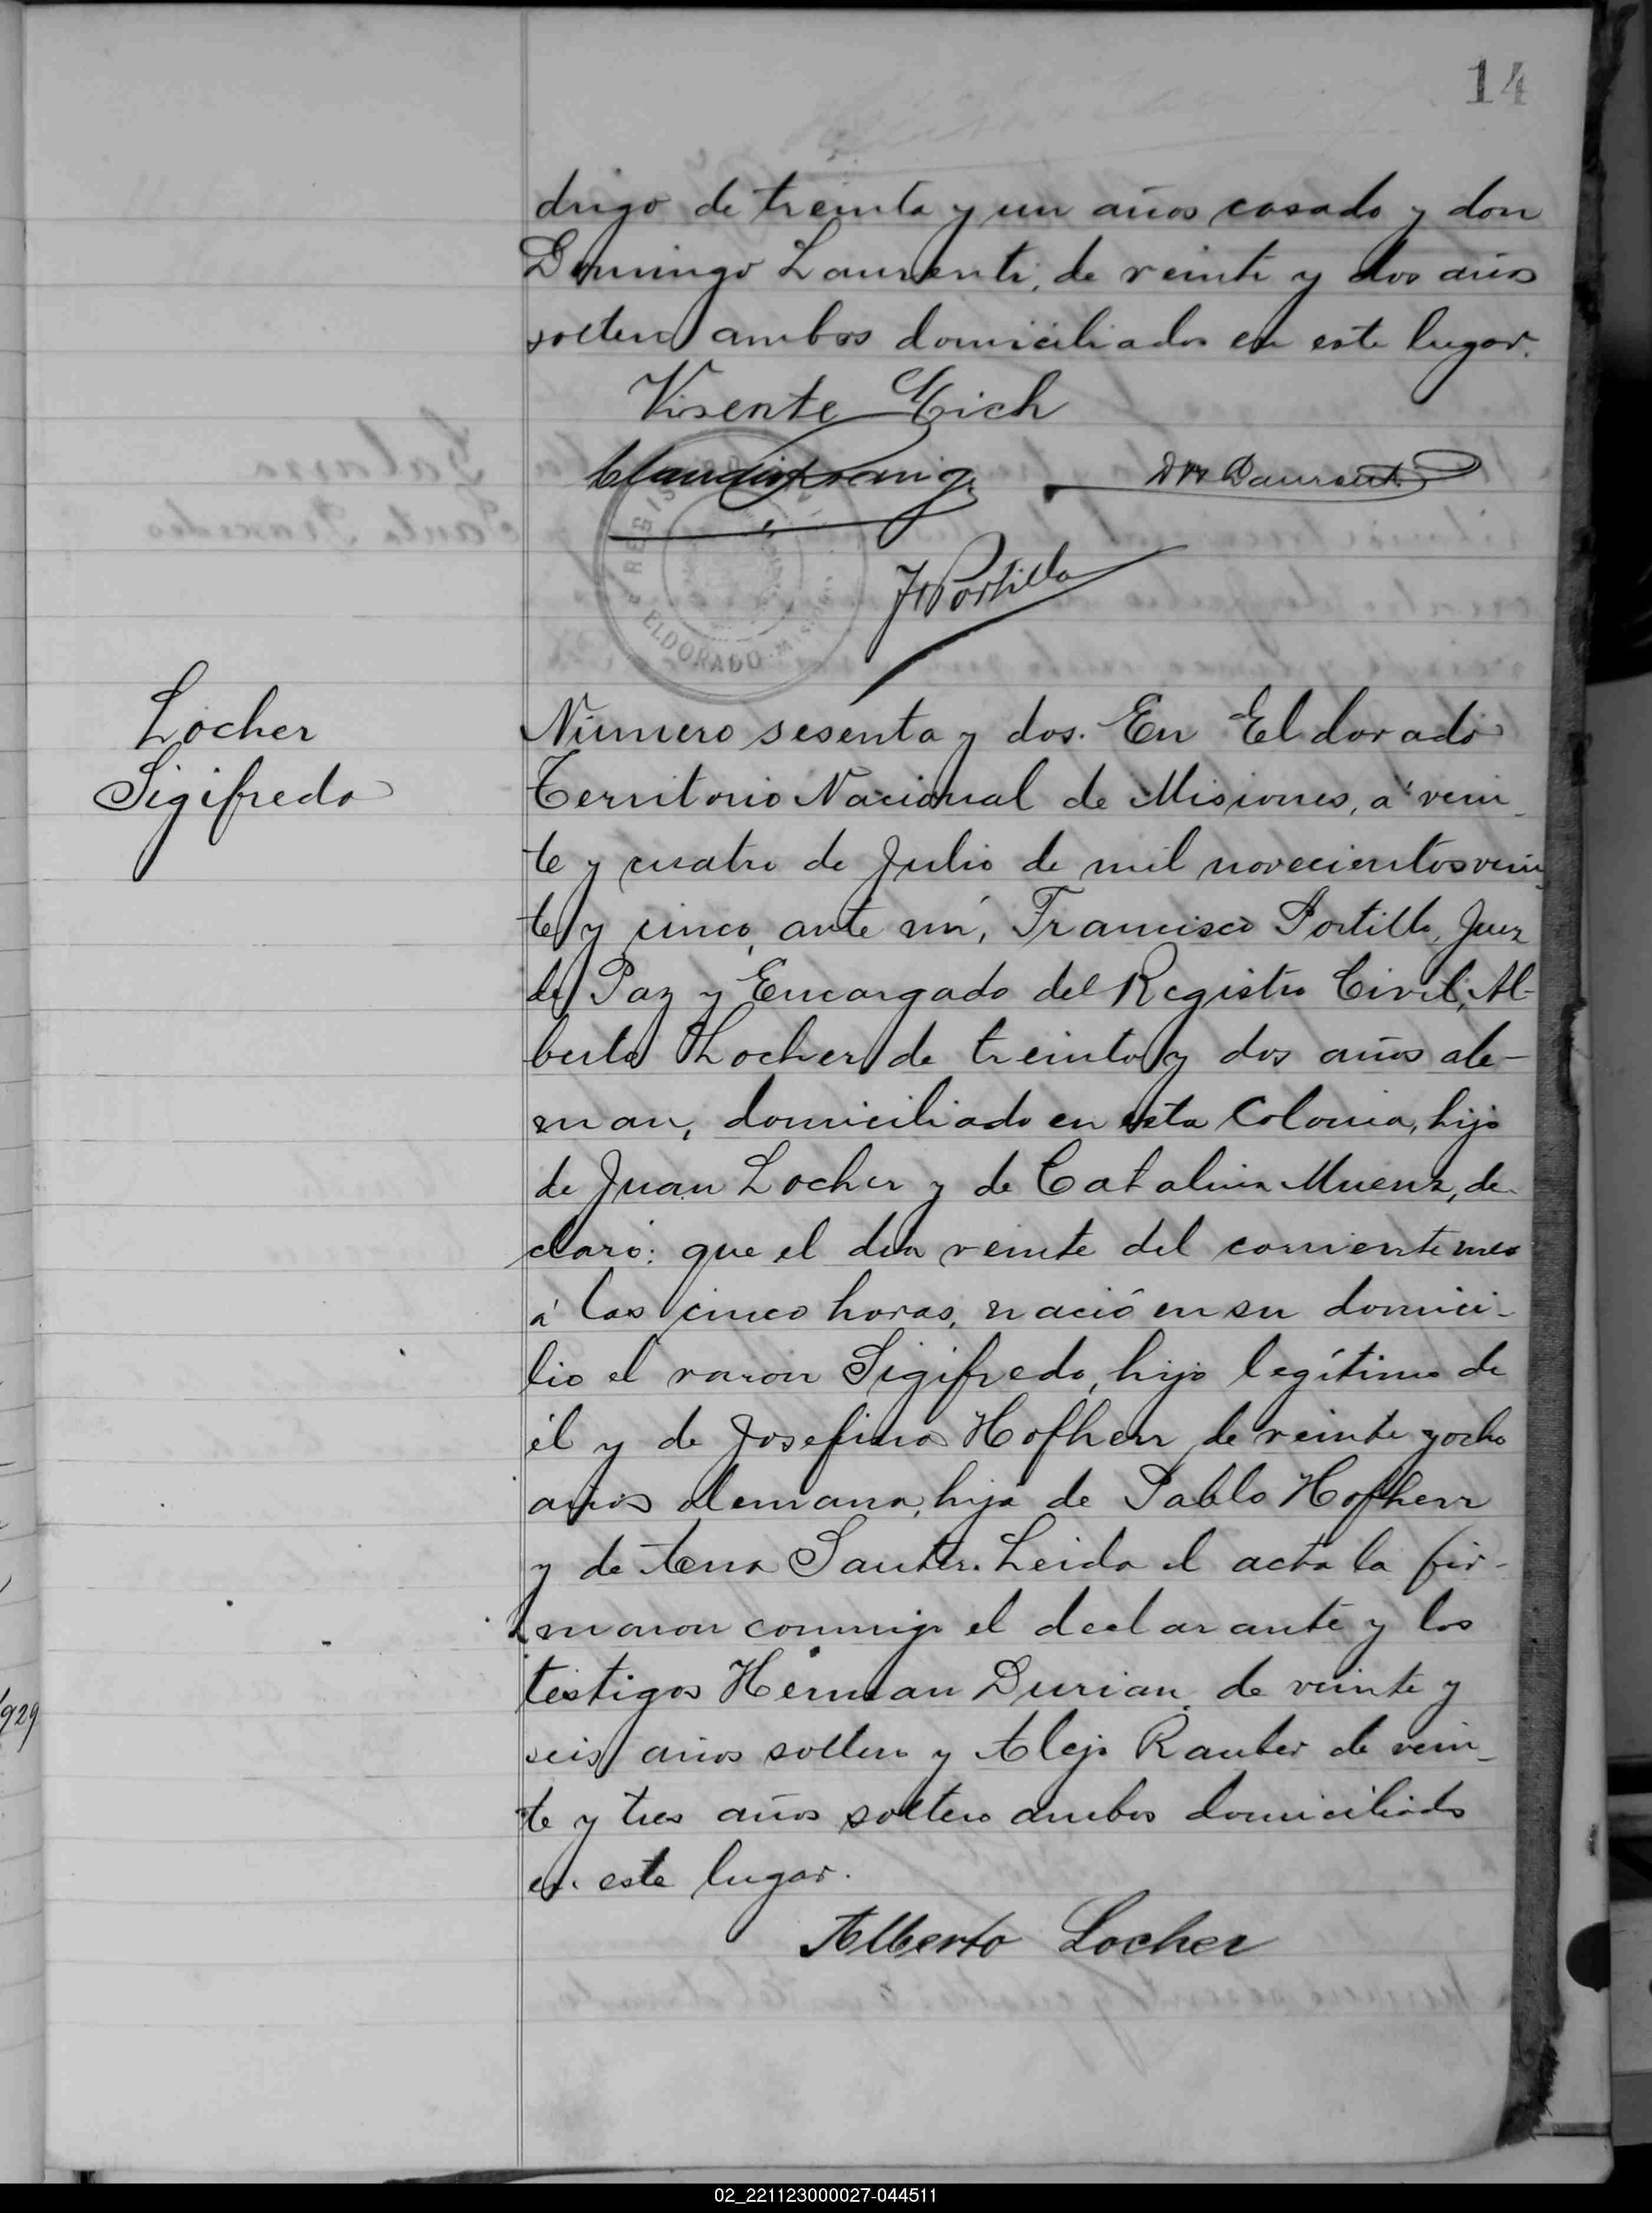 14
drigo de treinta y un años casado y don
Domingo Laurenti, de veinte y dos años
soltero ambos domiciliados en este lugar.
Visente Cich
J Portillo
REGIS
ELDORADO
Locher
Sigifredo
Número sesenta y dos. En Eldorado
Territorio Nacional de Misiones, á vein-
te y cuatro de Julio de mil novecientos vein
te y cinco, ante mí, Francisco Portillo, Juez
de Paz y Encargado del Registro Civil, Al-
berto Locher de treinta y dos años ale-
man, domiciliado en esta Colonia, hijo
de Juan Locher y de Catalina Muenz, de-
claró: que el dia veinte del corriente mes
á las cinco horas, nació en su domici-
lio el varon Sigifredo, hijo legítimo de
él y de Josefina Hofherr de veinte y ocho
años alemana, hija de Pablo Hofherr
y de Ana Sauter. Leida el acta la fir-
maron conmigo el declarante y los
testigos Herman Durian, de veinte y
seis años soltero y Alejo Rauber de vein-
te y tres años soltero ambos domiciliados
en este lugar.
Alberto Locher
929
02_221123000027-044511